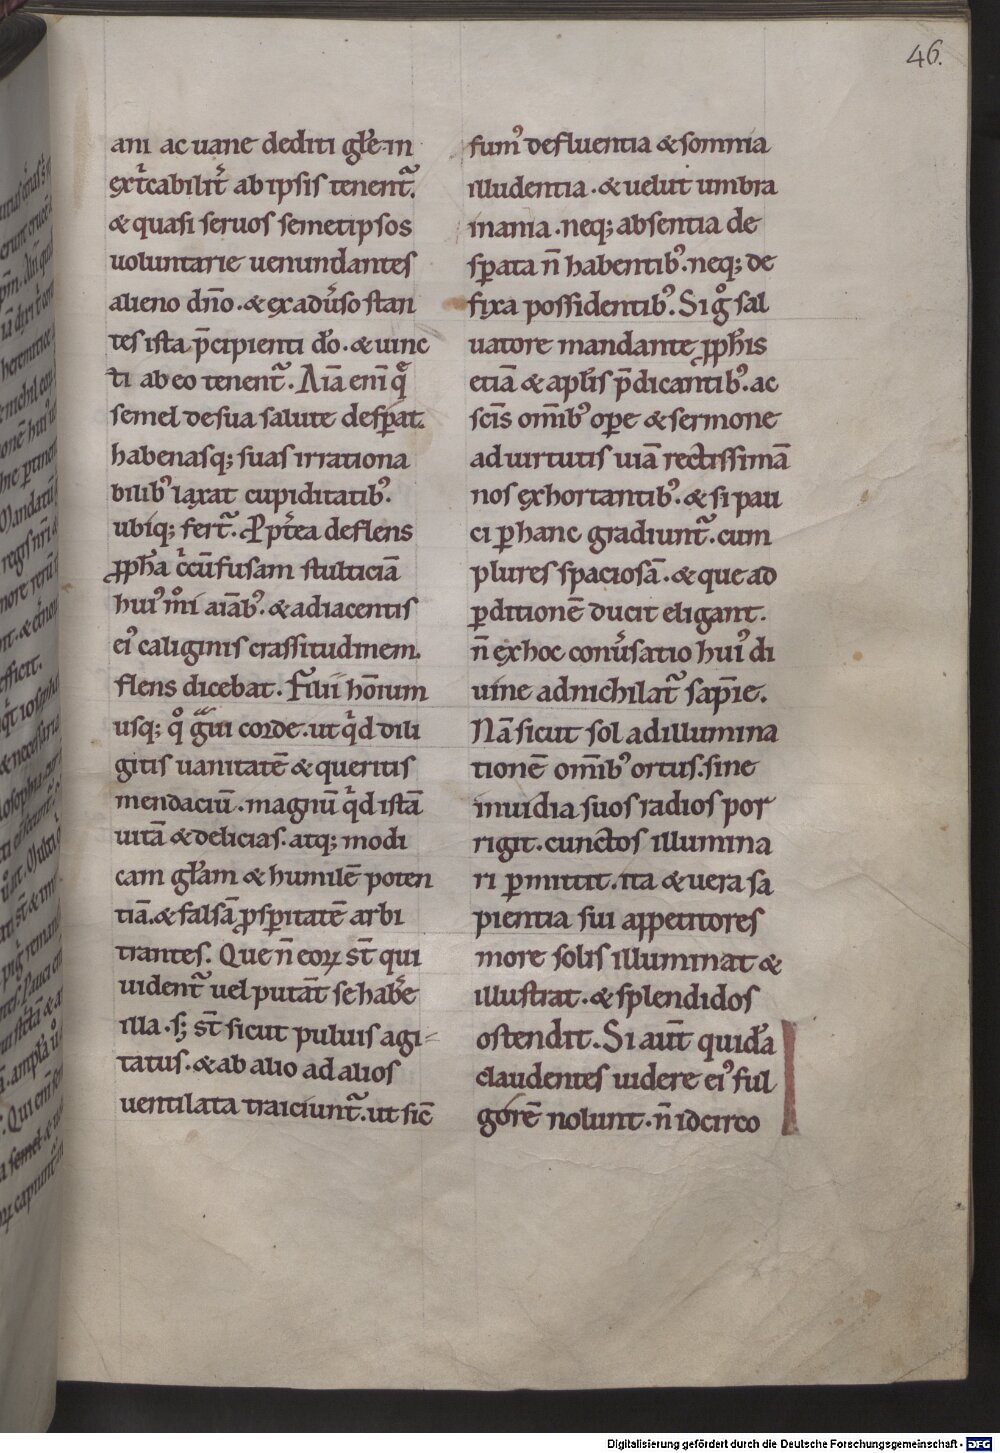 46.
ani ac uane dediti głe in
ext̾cabilit̾ ab ipsis tenent᷑.
& quasi seruos semetipsos
uoluntarie uenundantes
alieno dño. & exadu̾so stan
tes ista p̄cipienti dõ. & uinc
ti ab eo tenent᷑. Aīa eni q̄
semel de sua salute desꝑat.
habenasq; suas irrationa
bilibꝰ laxat cupiditatibꝰ.
ubiq; fert᷑. Ppt̾ea deflens
ꝓph̄a ccūfusam stulticiā
huiꝰ mͦi aiābꝰ. & adiacentis
eiꝰ caliginis crassitudinem.
flens dicebat. Filii hōium
usq; qͦ g̃ui corde. ut qͥd dili
gitis uanitatē & queritis
mendaciū. magnū qͥd istā
uitā & delicias. atq; modi
cam głam & humilē poten
tiā. & falsā ꝓsꝑitatē arbi
trantes. Que ñ eoꝝ st̄ qui
uident᷑ uel putāt se hab̾e
illa. s; st̄ sicut puluis agi-
tatus. & ab alio ad alios
uentilata traiciunt᷑. ut sic̄
fumꝰ defluentia & somnia
illudentia. & uelut umbra
inania. neq; absentia de
sꝑata ñ habentibꝰ. neq; de
fixa possidentibꝰ. Si gͦ sal
uatore mandante ꝓph̄is
etiā & apłis p̄dicantibꝰ. ac
sc̄is omībꝰ oꝑe & sermone
ad uirtutis uiā rectissimā
nos exhortantibꝰ. & si pau
ci ꝑ hanc gradiunt᷑. cum
plures spaciosā. & que ad
ꝑditionē ducit eligant.
ñ ex hoc conu̾satio huiꝰ di
uine adnichilat᷑ sapīe.
Nā sicut sol ad illumina
tionē omībꝰ ortus. sine
inuidia suos radios por
rigit. cunctos illumina
ri ꝑmittit. ita & uera sa
pientia sui appetitores
more solis illuminat &
illustrat. & splendidos
ostendit. Si aut̄ quidā
claudentes uidere eiꝰ ful
gorē nolunt. ñ idcirco
Digitalisierung gefördert durch die Deutsche Forschungsgemeinschaft - DFG